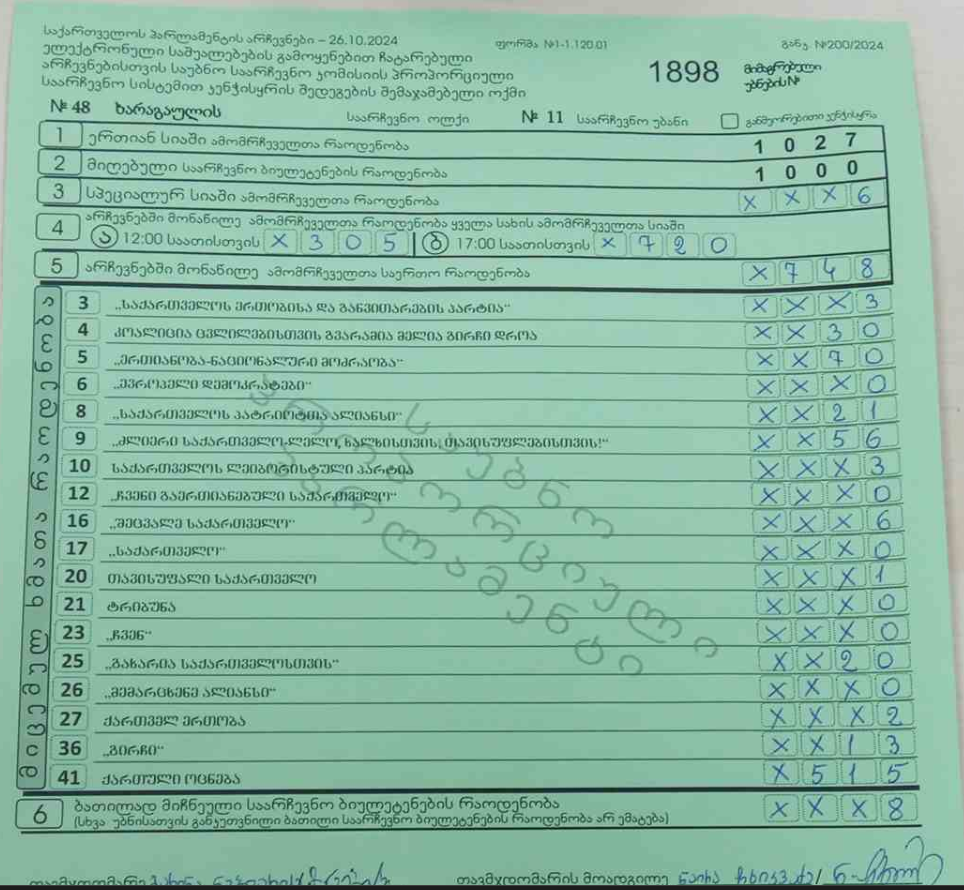 საქართველოს პარლამენტის არჩევნები – 26.10.2024 ფორმა №1-1.120.01 განკ. №200/2024
ელექტრონული საშუალებების გამოყენებით ჩატარებული
არჩევნებისთვის საუბნო საარჩევნო კომისიის პროპორციული 1898 მიმაგრებული
საარჩევნო სისტემით კენჭისყრის შედეგების შემაჯამებელი ოქმი უბნების №
№ 48 ხარაგაულის საარჩევნო ოლქი № 11 საარჩევნო უბანი განმეორებითი კენჭისყრა
1 ერთიან სიაში ამომრჩეველთა რაოდენობა 1 0 2 7
2 მიღებული საარჩევნო ბიულეტენების რაოდენობა 1 0 0 0
3 სპეციალურ სიაში ამომრჩეველთა რაოდენობა X X X 6
4 არჩევნებში მონაწილე ამომრჩეველთა რაოდენობა ყველა სახის ამომრჩეველთა სიაში
ა 12:00 საათისთვის X 3 0 5 ბ 17:00 საათისთვის X 7 2 0
5 არჩევნებში მონაწილე ამომრჩეველთა საერთო რაოდენობა X 7 4 8
3 „საქართველოს ერთობისა და განვითარების პარტია“ X X X 3
4 კოალიცია ცვლილებისთვის გვარამია მელია გირჩი დროა X X 3 0
5 „ერთიანობა-ნაციონალური მოძრაობა“ X X 7 0
6 „ევროპული დემოკრატები“ X X X 0
8 „საქართველოს პატრიოტთა ალიანსი“ X X 2 1
9 „ძლიერი საქართველო-ლელო, ხალხისთვის, თავისუფლებისთვის!“ X X 5 6
10 საქართველოს ლეიბორისტული პარტია X X X 3
12 „ჩვენი გაერთიანებული საქართველო“ X X X 0
16 „შეცვალე საქართველო“ X X X 6
17 „საქართველო“ X X X 0
20 თავისუფალი საქართველო X X X 1
21 ტრიბუნა X X X 0
23 „ჩვენ“ X X X 0
25 „გახარია საქართველოსთვის“ X X 2 0
26 „მემარცხენე ალიანსი“ X X X 0
27 ქართველ ერთობა X X X 2
36 „გირჩი“ X X 1 3
41 ქართული ოცნება X 5 1 5
მიცემულ ხმათა რაოდენობა
საუბნო
პროპორციული
პარლამენტი
6 ბათილად მიჩნეული საარჩევნო ბიულეტენების რაოდენობა X X X 8
(სხვა უბნისათვის განკუთვნილი ბათილი საარჩევნო ბიულეტენების რაოდენობა არ ემატება)
თავმჯდომარე თავმჯდომარის მოადგილე